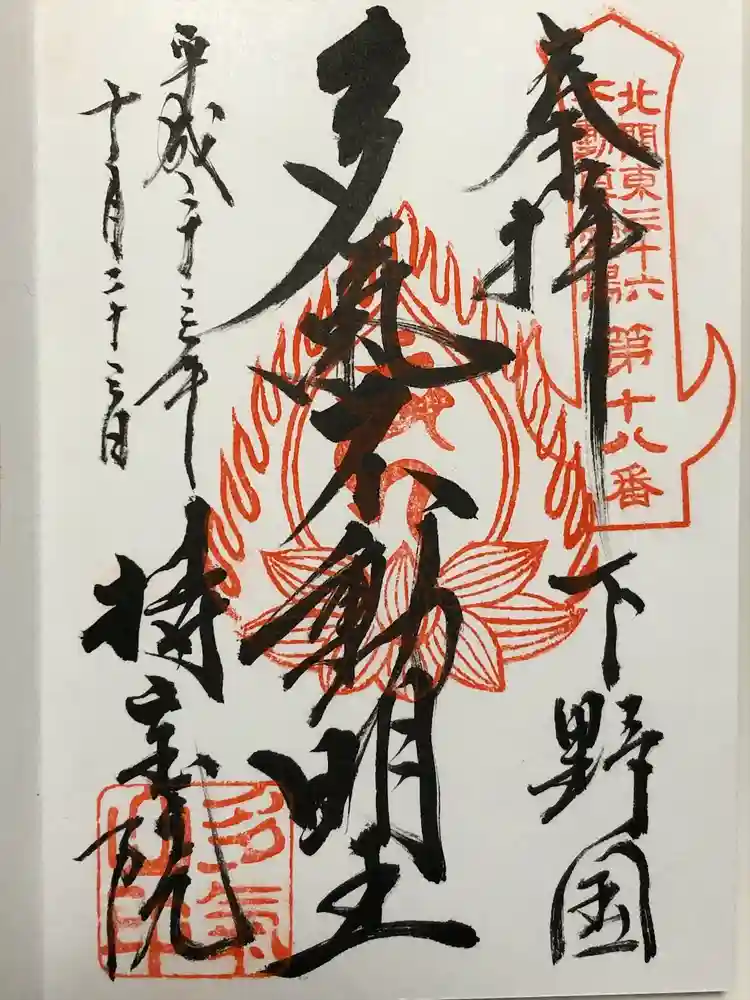 奉拝
北関東三十六
不動尊霊場
第十八番
下野国
多氣不動明王
平成二十三年
十月二十三日
持宝院
多氣